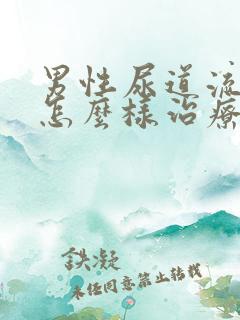 男性尿道流
怎麼樣治療
鉄凝
未经同意禁止转载